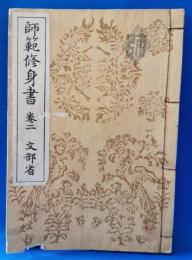 師範修身書 卷二 文部省